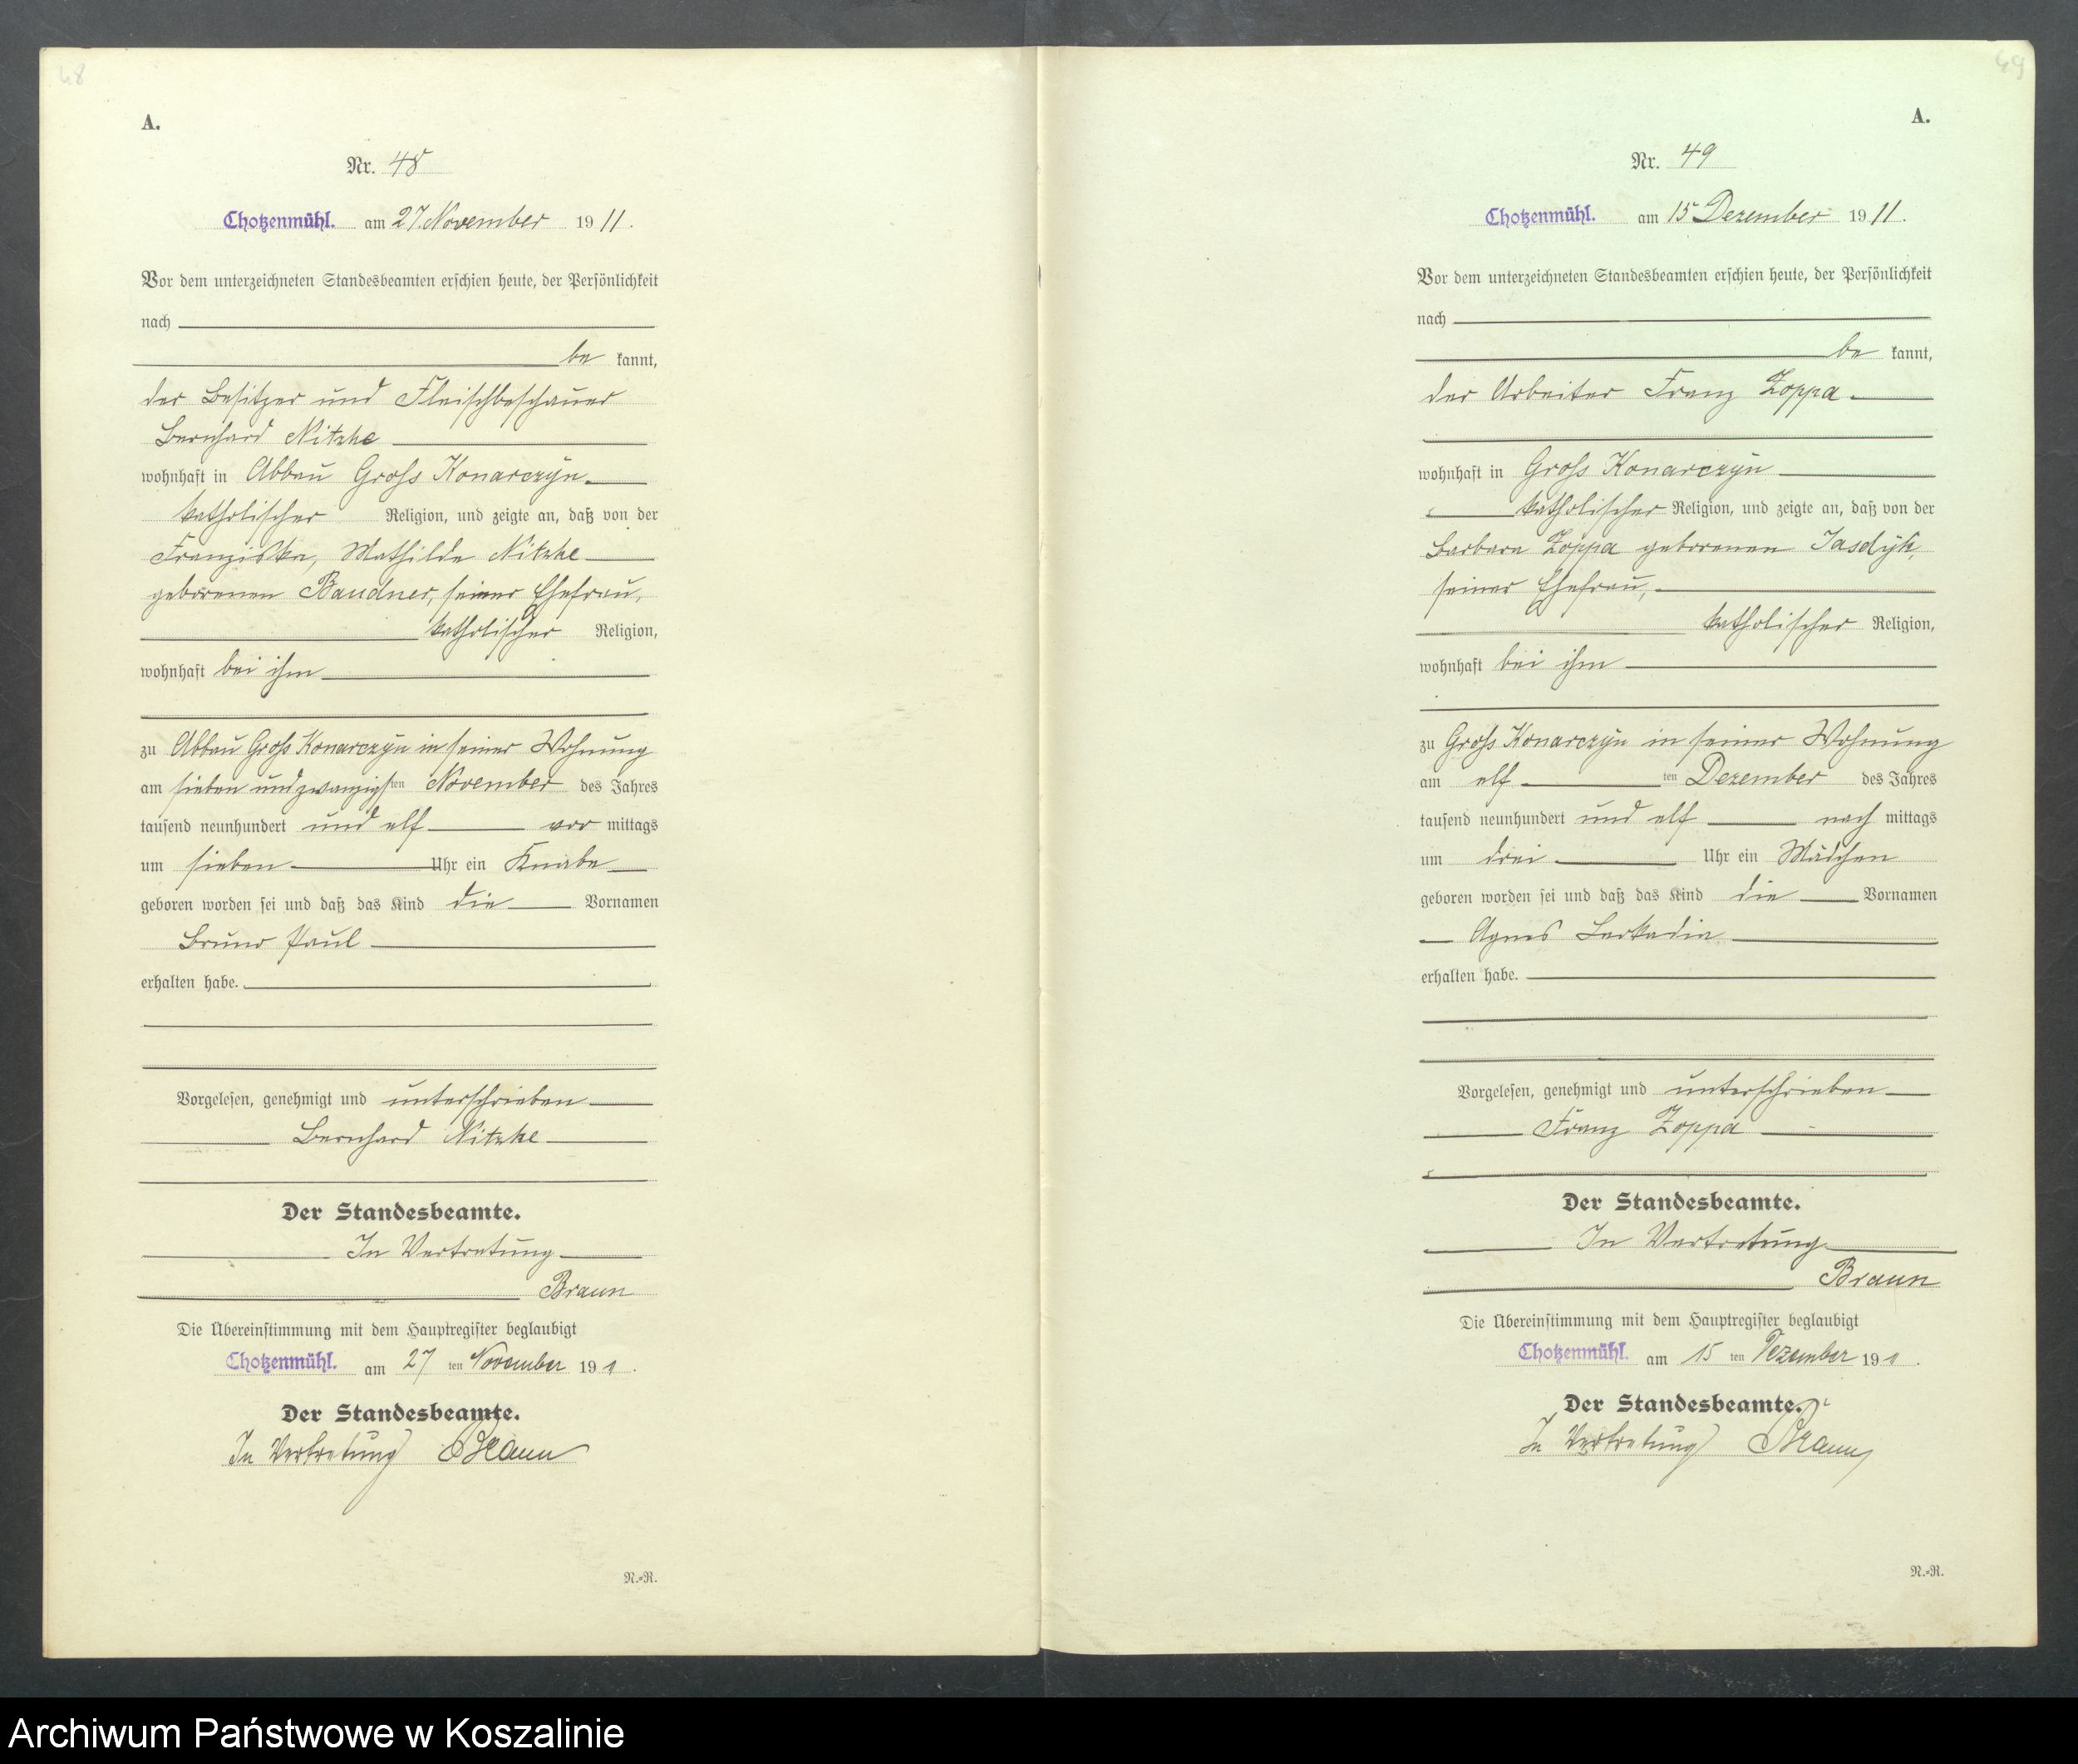 48
A.
Nr. 48
Chotzenmühl. am 27. November 1911.
Vor dem unterzeichneten Standesbeamten erschien heute, der Persönlichkeit
nach
be kannt,
der Besitzer und Fleischbeschauer
Bernhard Nitzke
wohnhaft in Abbau Groß Konarczyn
katholischer Religion, und zeigte an, daß von der
Franziska, Mathilde Nitzke
geborenen Baudner, seiner Ehefrau,
katholischer Religion,
wohnhaft bei ihm
zu Abbau Groß Konarczyn in seiner Wohnung
am sieben und zwanzigsten November des Jahres
tausend neunhundert und elf vor mittags
um sieben Uhr ein Knabe
geboren worden sei und daß das Kind die Vornamen
Bruno Paul
erhalten habe.
Vorgelesen, genehmigt und unterschrieben
Bernhard Nitzke
Der Standesbeamte.
In Vertretung
Braun
Die Übereinstimmung mit dem Hauptregister beglaubigt
Chotzenmühl. am 27 ten November 19
Der Standesbeamte.
In Vertretung Braun
N.=R.
49
A.
Nr. 49
Chotzenmühl. am 15 Dezember 1911.
Vor dem unterzeichneten Standesbeamten erschien heute, der Persönlichkeit
nach
be kannt,
der Arbeiter Franz Zoppa
wohnhaft in Groß Konarczyn
katholischer Religion, und zeigte an, daß von der
Barbara Zoppa geborenen Jasdyk,
seiner Ehefrau,
katholischer Religion,
wohnhaft bei ihm
zu Groß Konarczyn in seiner Wohnung
am elf ten Dezember des Jahres
tausend neunhundert und elf nach mittags
um drei Uhr ein Mädchen
geboren worden sei und daß das Kind die Vornamen
Agnes Leokadia
erhalten habe.
Vorgelesen, genehmigt und unterschrieben
Franz Zoppa
Der Standesbeamte.
In Vertretung
Braun
Die Übereinstimmung mit dem Hauptregister beglaubigt
Chotzenmühl. am 15 ten Dezember 19
Der Standesbeamte.
In Vertretung Braun
N.=R.
Archiwum Państwowe w Koszalinie